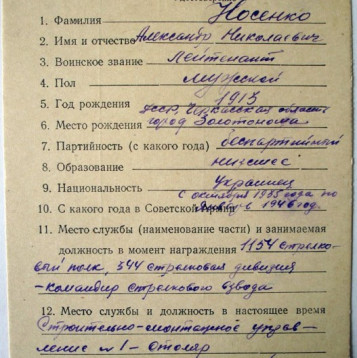 1. Фамилия Носенко
2. Имя и отчество Александр Николаевич
3. Воинское звание Лейтенант
4. Пол мужской
5. Год рождения 1913
УССР, Черкасская область
6. Место рождения город Золотоноша
7. Партийность (с какого года) беспартийный
8. Образование низшее
9. Национальность украинец
с октября 1935 года по
10. С какого года в Советской Армии 1946 год.
11. Место службы (наименование части) и занимаемая
должность в момент награждения 1154 стрелко-
вый полк, 344 стрелковая дивизия
- командир стрелкового взвода
12. Место службы и должность в настоящее время
Строительно-монтажное управ-
ление №1 - столяр